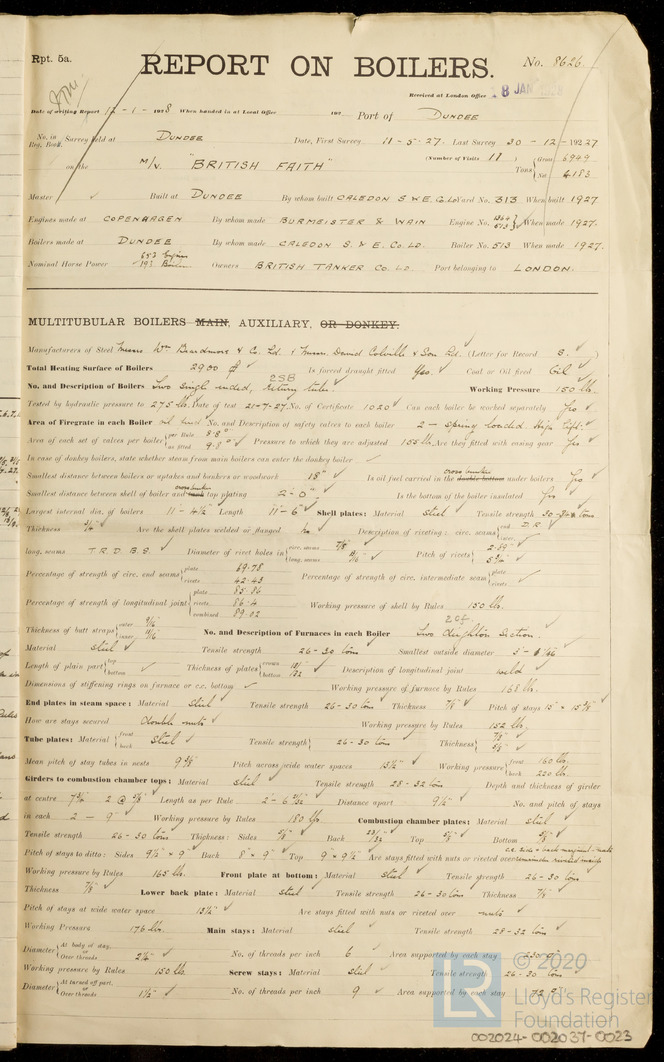 Rpt. 5a.
REPORT ON BOILERS.
No. 8626
Received at London Office 18 JAN 1928
Date of writing Report 12-1-1928 When handed in at Local Office 192 Port of DUNDEE
No. in Reg. Book. Survey held at DUNDEE Date, First Survey 11-5-27. Last Survey 30-12-19227
on the M/V. "BRITISH FAITH" (Number of Visits 17) Tons Gross 6949 Net 4183
Master Built at DUNDEE By whom built CALEDON S & E. Co. Ld Yard No. 313 When built 1927.
Engines made at COPENHAGEN By whom made BURMEISTER & WAIN Engine No. When made 1927.
Boilers made at DUNDEE By whom made CALEDON S. & E. Co. LD. Boiler No. 513 When made 1927.
Nominal Horse Power 653 Engines 193 Boiler Owners BRITISH TANKER Co. LD. Port belonging to LONDON.
MULTITUBULAR BOILERS MAIN, AUXILIARY, OR DONKEY.
Manufacturers of Steel Messrs. Wm Beardmore & Co. Ld. & Messrs. David Colville & Son Ld. (Letter for Record S.)
Total Heating Surface of Boilers 2900 Is forced draught fitted Yes. Coal or Oil fired Oil
No. and Description of Boilers Two single ended, return tube. 2SB Working Pressure 150 lb.
Tested by hydraulic pressure to 275 lb. Date of test 21-7-27. No. of Certificate 1020 Can each boiler be worked separately Yes
Area of Firegrate in each Boiler oil fired No. and Description of safety valves to each boiler 2 - spring loaded. High lift.
Area of each set of valves per boiler per Rule 8.8 as fitted 9.8 Pressure to which they are adjusted 155 lb. Are they fitted with easing gear Yes
In case of donkey boilers, state whether steam from main boilers can enter the donkey boiler
Smallest distance between boilers or uptakes and bunkers or woodwork 18" Is oil fuel carried in the double bottom cross bunker under boilers Yes
Smallest distance between shell of boiler and tank cross bunker top plating 2'-0" Is the bottom of the boiler insulated Yes
Largest internal dia. of boilers 11'-4½" Length 11'-6" Shell plates: Material steel Tensile strength 30-34 tons
Thickness ¾" Are the shell plates welded or flanged no Description of riveting: circ. seams end D.R. inter.
long. seams T.R.D.B.S. Diameter of rivet holes in circ. seams 7/8" long. seams 13/16" Pitch of rivets
Percentage of strength of circ. end seams plate 69.78 rivets 42.43 Percentage of strength of circ. intermediate seam plate rivets
Percentage of strength of longitudinal joint plate 85.86 rivets 86.4 combined 89.02 Working pressure of shell by Rules 150 lb.
Thickness of butt straps outer 9/16" inner 11/16" No. and Description of Furnaces in each Boiler 2cf. Two Deighton Section.
Material steel Tensile strength 26-30 tons Smallest outside diameter
Length of plain part top bottom Thickness of plates crown bottom Description of longitudinal joint weld
Dimensions of stiffening rings on furnace or c.c. bottom Working pressure of furnace by Rules 158 lb.
End plates in steam space: Material steel Tensile strength 26-30 tons Thickness 7/8" Pitch of stays
How are stays secured double nuts Working pressure by Rules 152 lb.
Tube plates: Material front back steel Tensile strength 26-30 tons Thickness 7/8" 5/8"
Mean pitch of stay tubes in nests 9 3/8 Pitch across wide water spaces 13½" Working pressure front 160 lb. back 220 lb.
Girders to combustion chamber tops: Material steel Tensile strength 28-32 tons Depth and thickness of girder
at centre 7¾" 2 @ 5/8" Length as per Rule Distance apart 9½" No. and pitch of stays
in each 2 - 9" Working pressure by Rules 180 lb. Combustion chamber plates: Material steel
Tensile strength 26-30 tons Thickness: Sides 5/8" Back 23/32 Top 5/8" Bottom 5/8"
Pitch of stays to ditto: Sides 9½" × 9" Back 8" × 9" Top 9" × 9½" Are stays fitted with nuts or riveted over
Working pressure by Rules 165 lb. Front plate at bottom: Material steel Tensile strength 26-30 tons
Thickness 7/8" Lower back plate: Material steel Tensile strength 26-30 tons Thickness 7/8"
Pitch of stays at wide water space 13¼" Are stays fitted with nuts or riveted over nuts
Working Pressure 176 lb. Main stays: Material steel Tensile strength 28-32 tons
Diameter At body of stay, or Over threads 2½" No. of threads per inch 6 Area supported by each stay 230
Working pressure by Rules 150 lb. Screw stays: Material steel Tensile strength 26-30 tons
Diameter At turned off part, or Over threads 1½" No. of threads per inch 9 Area supported by each stay 72
© 2020
LR
Lloyd's Register
Foundation
002024-002037-0023